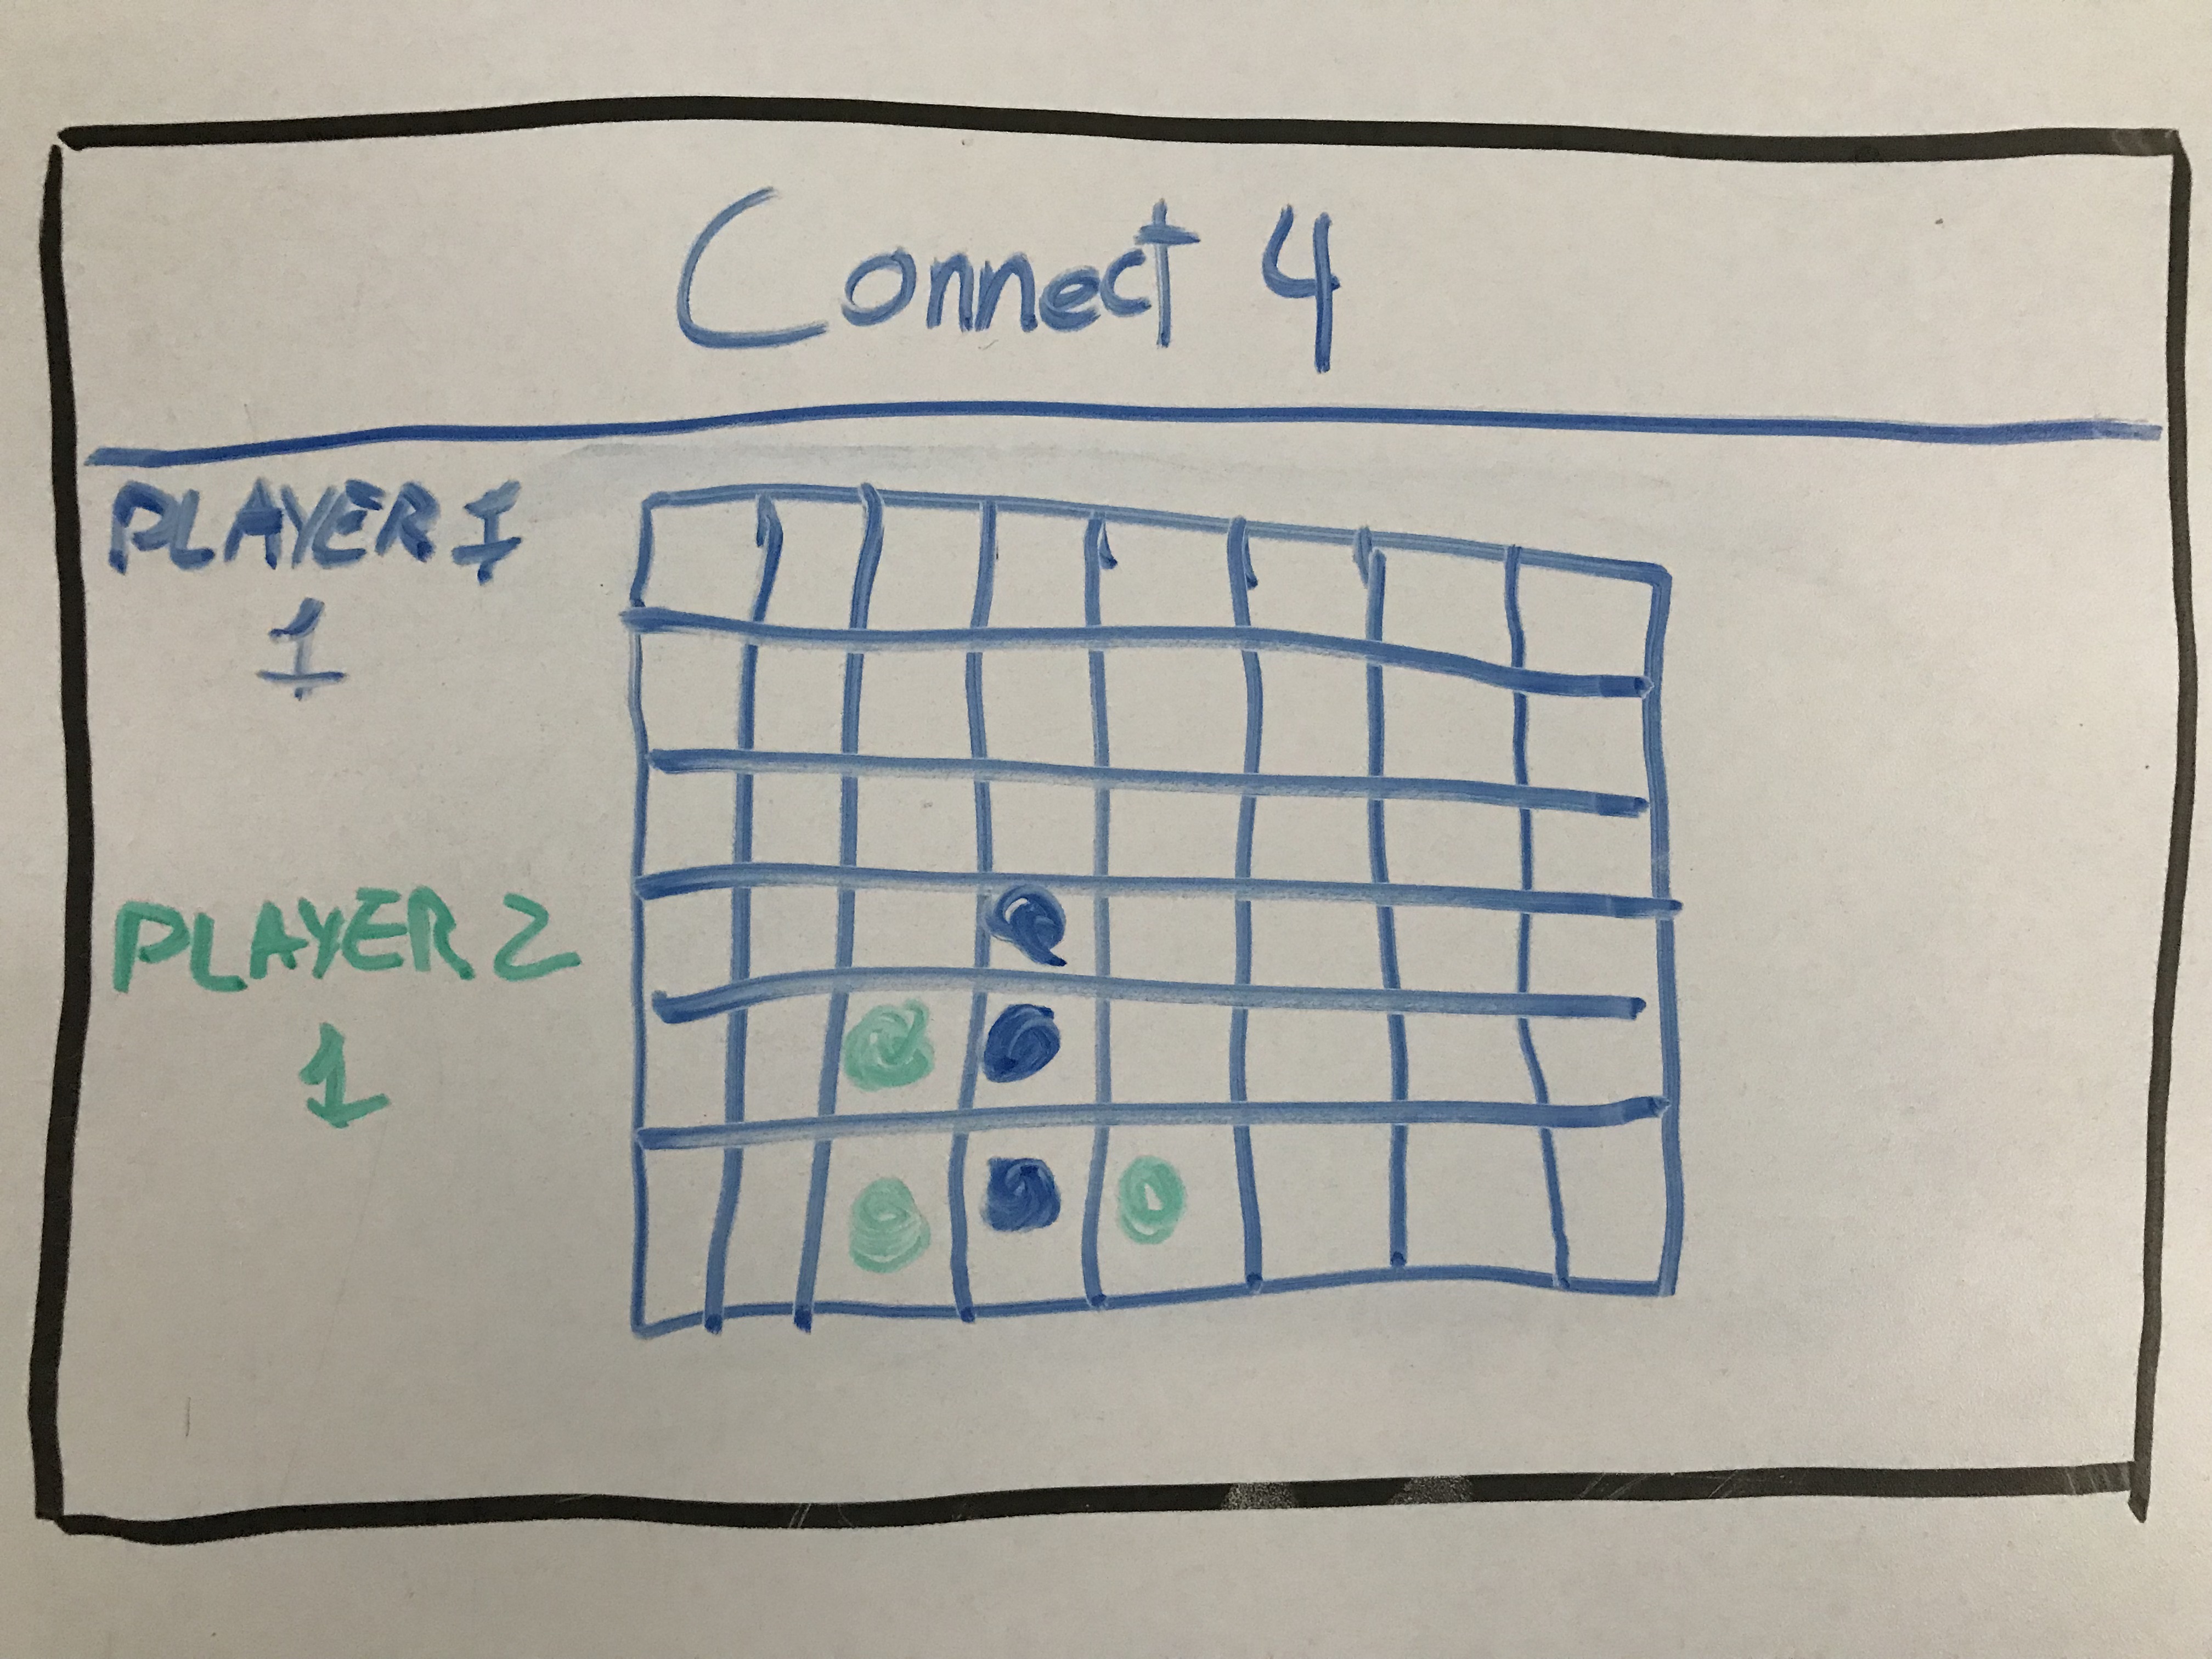 Connect 4
PLAYER 1
1
PLAYER 2
1